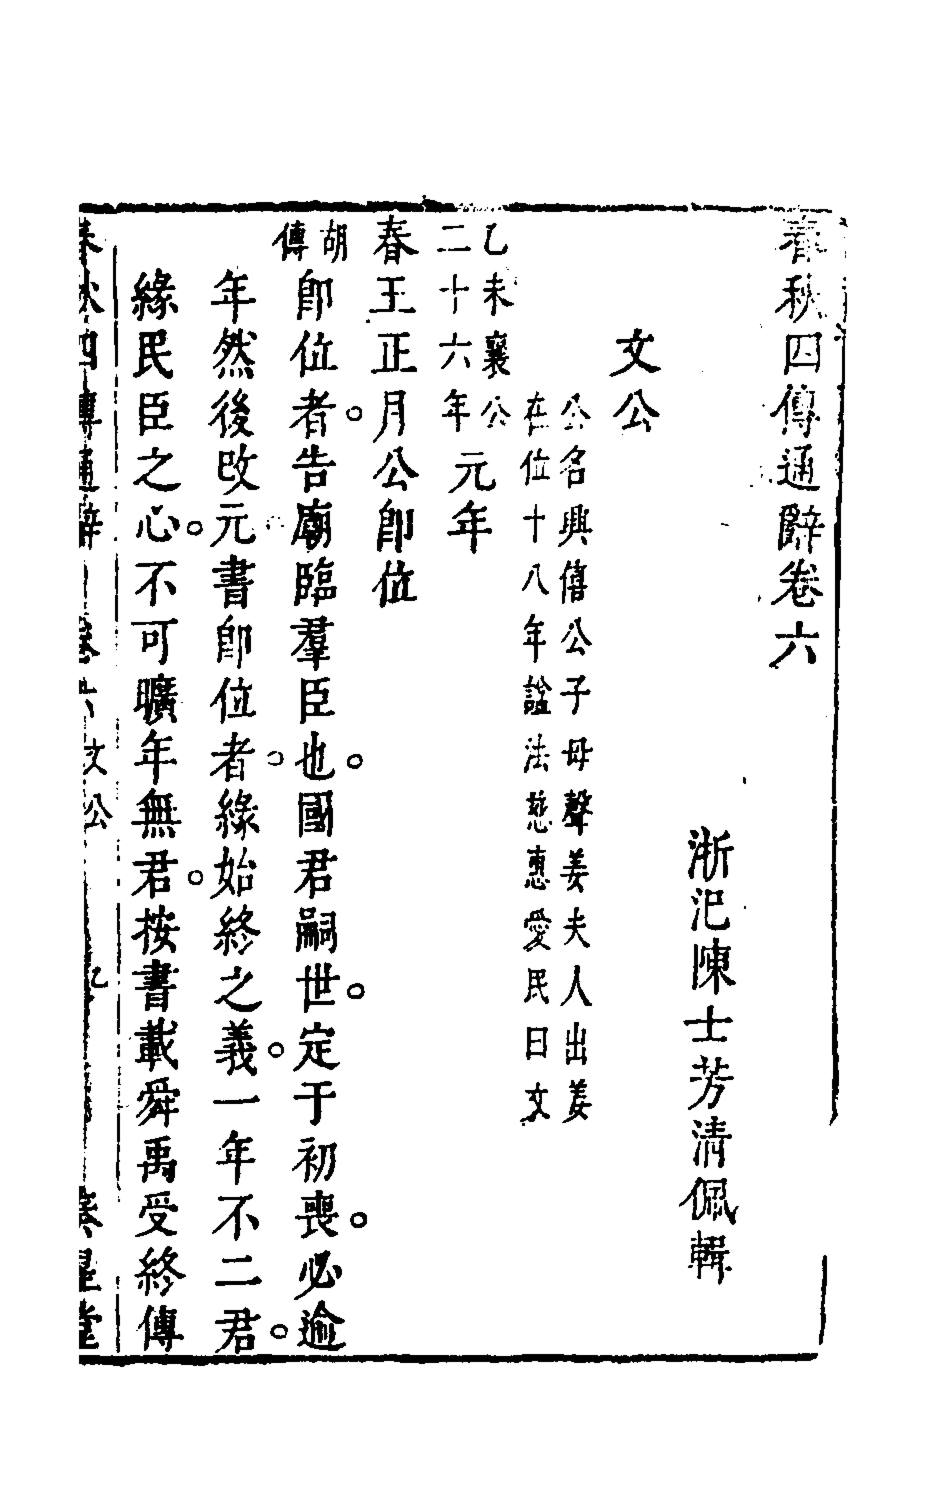 春秋四傳通辭卷六
浙汜陳士芳清佩輯
文公
公名興僖公子母聲姜夫人出姜
在位十八年諡法慈惠愛民曰文
乙未襄公
二十六年
元年
春王正月公卽位
胡傳
卽位者。告廟臨羣臣也。國君嗣世。定于初喪。必逾
年然後改元書卽位者。緣始終之義。一年不二君。
緣民臣之心。不可曠年無君。按書載舜禹受終傳
春秋四傳通辭 卷六 文公 星堂